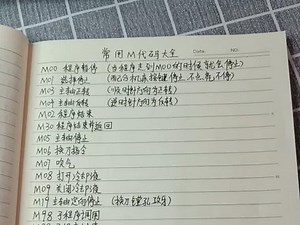 常用M代码大全
Date. NO.
M00 程序暂停 (当程序走到M00的时候就会停止)
M01 选择停止
M03 主轴正转 (顺时针方向为正转)
M04 主轴反转 (逆时针方向为反转)
M02 程序结束
M30 程序结束并返回
M05 主轴停止
M06 换刀指令
M07 吹气
M08 打开冷却液
M09 关闭冷却液
M19 主轴定向停止 (换刀镗孔攻牙)
M98 子程序调用